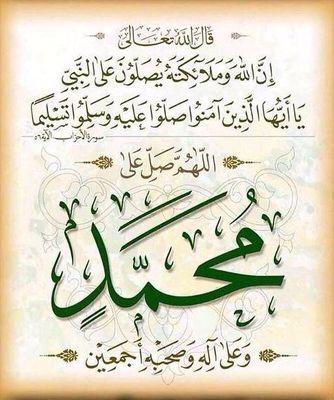 قَالَ اللَّهُ تَعَالَى
إِنَّ اللَّهَ وَمَلَائِكَتَهُ يُصَلُّونَ عَلَى النَّبِيِّ
يَا أَيُّهَا الَّذِينَ آمَنُوا صَلُّوا عَلَيْهِ وَسَلِّمُوا تَسْلِيمًا
سورة الأحزاب الآية ٥٦
اللَّهُمَّ صَلِّ عَلَى
مُحَمَّدٍ
وَعَلَى آلِهِ وَصَحْبِهِ أَجْمَعِينَ